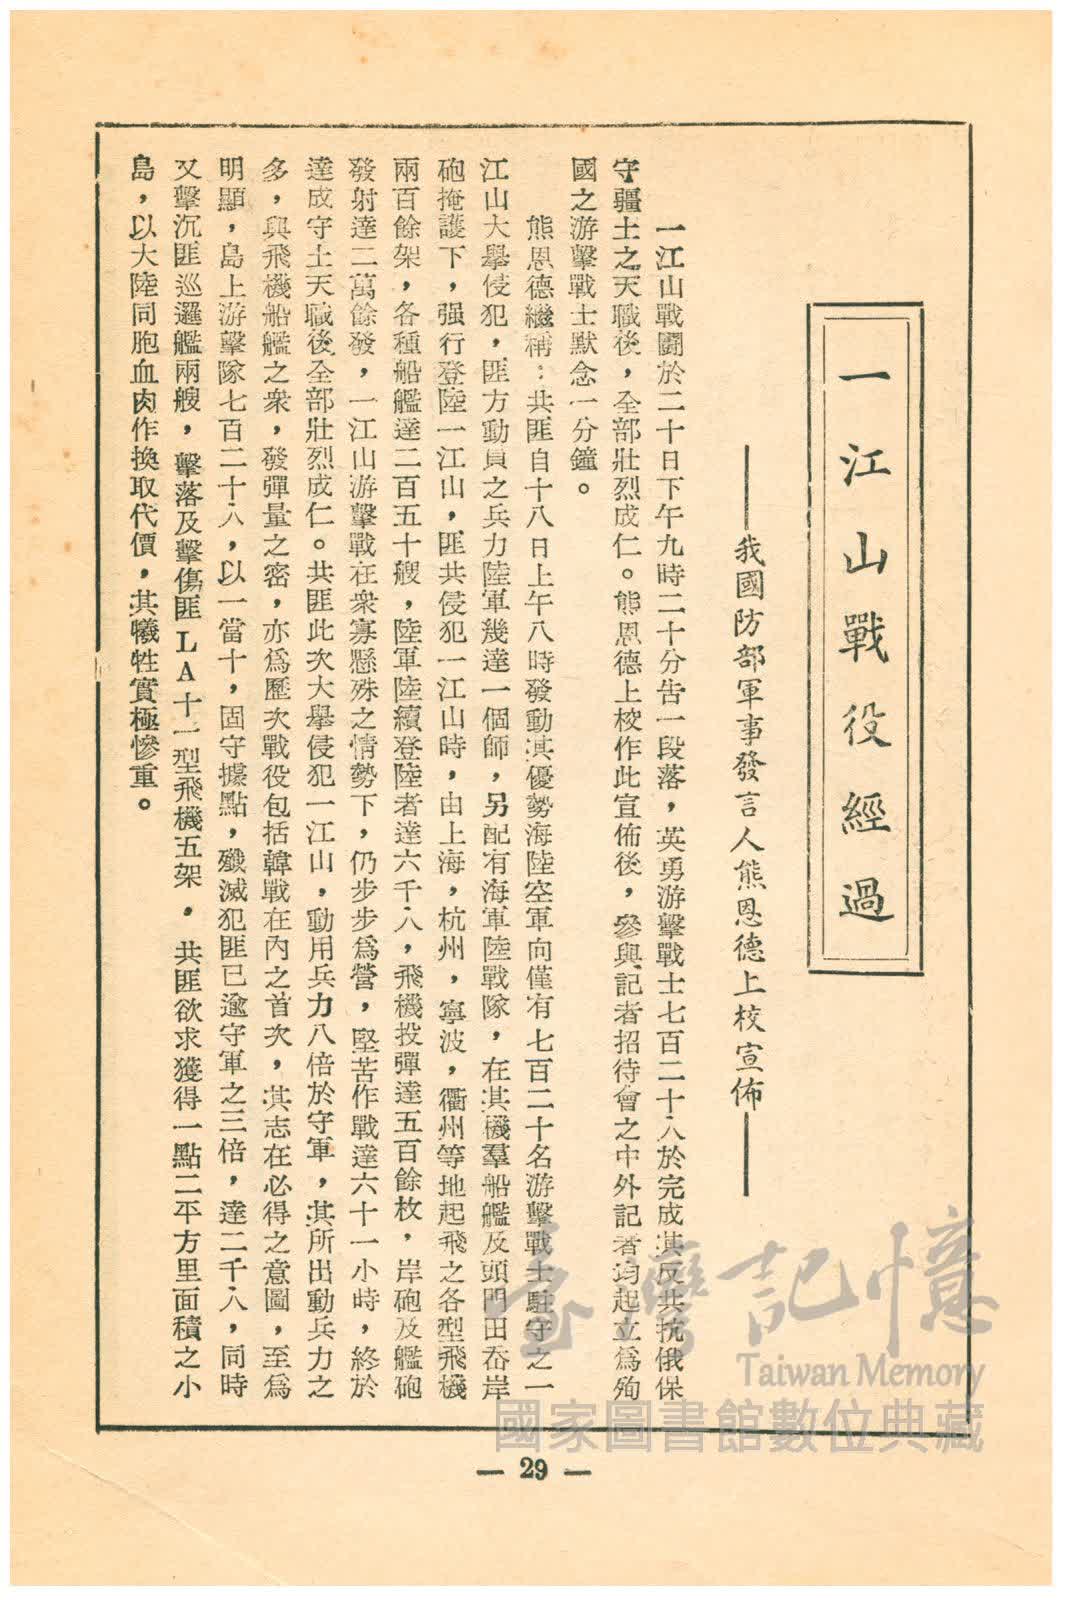 一江山戰役經過
——我國防部軍事發言人熊恩德上校宣佈——
一江山戰鬪於二十日下午九時二十分告一段落，英勇游擊戰士七百二十人於完成其反共抗俄保
守疆土之天職後，全部壯烈成仁。熊恩德上校作此宣佈後，參與記者招待會之中外記者均起立為殉
國之游擊戰士默念一分鐘。
熊恩德繼稱：共匪自十八日上午八時發動其優勢海陸空軍向僅有七百二十名游擊戰士駐守之一
江山大舉侵犯，匪方動員之兵力陸軍幾達一個師，另配有海軍陸戰隊，在其機羣船艦及頭門田岙岸
砲掩護下，强行登陸一江山，匪共侵犯一江山時，由上海，杭州，寧波，衢州等地起飛之各型飛機
兩百餘架，各種船艦達二百五十艘，陸軍陸續登陸者達六千人，飛機投彈達五百餘枚，岸砲及艦砲
發射達二萬餘發，一江山游擊戰在衆寡懸殊之情勢下，仍步步為營，堅苦作戰達六十一小時，終於
達成守土天職後全部壯烈成仁。共匪此次大舉侵犯一江山，動用兵力八倍於守軍，其所出動兵力之
多，與飛機船艦之衆，發彈量之密，亦為歷次戰役包括韓戰在內之首次，其志在必得之意圖，至為
明顯，島上游擊隊七百二十人，以一當十，固守據點，殲滅犯匪已逾守軍之三倍，達二千人，同時
又擊沉匪巡邏艦兩艘，擊落及擊傷匪LA十一型飛機五架，共匪欲求獲得一點二平方里面積之小
島，以大陸同胞血肉作換取代價，其犧牲實極慘重。
— 29 —
臺灣記憶
Taiwan Memory
國家圖書館數位典藏